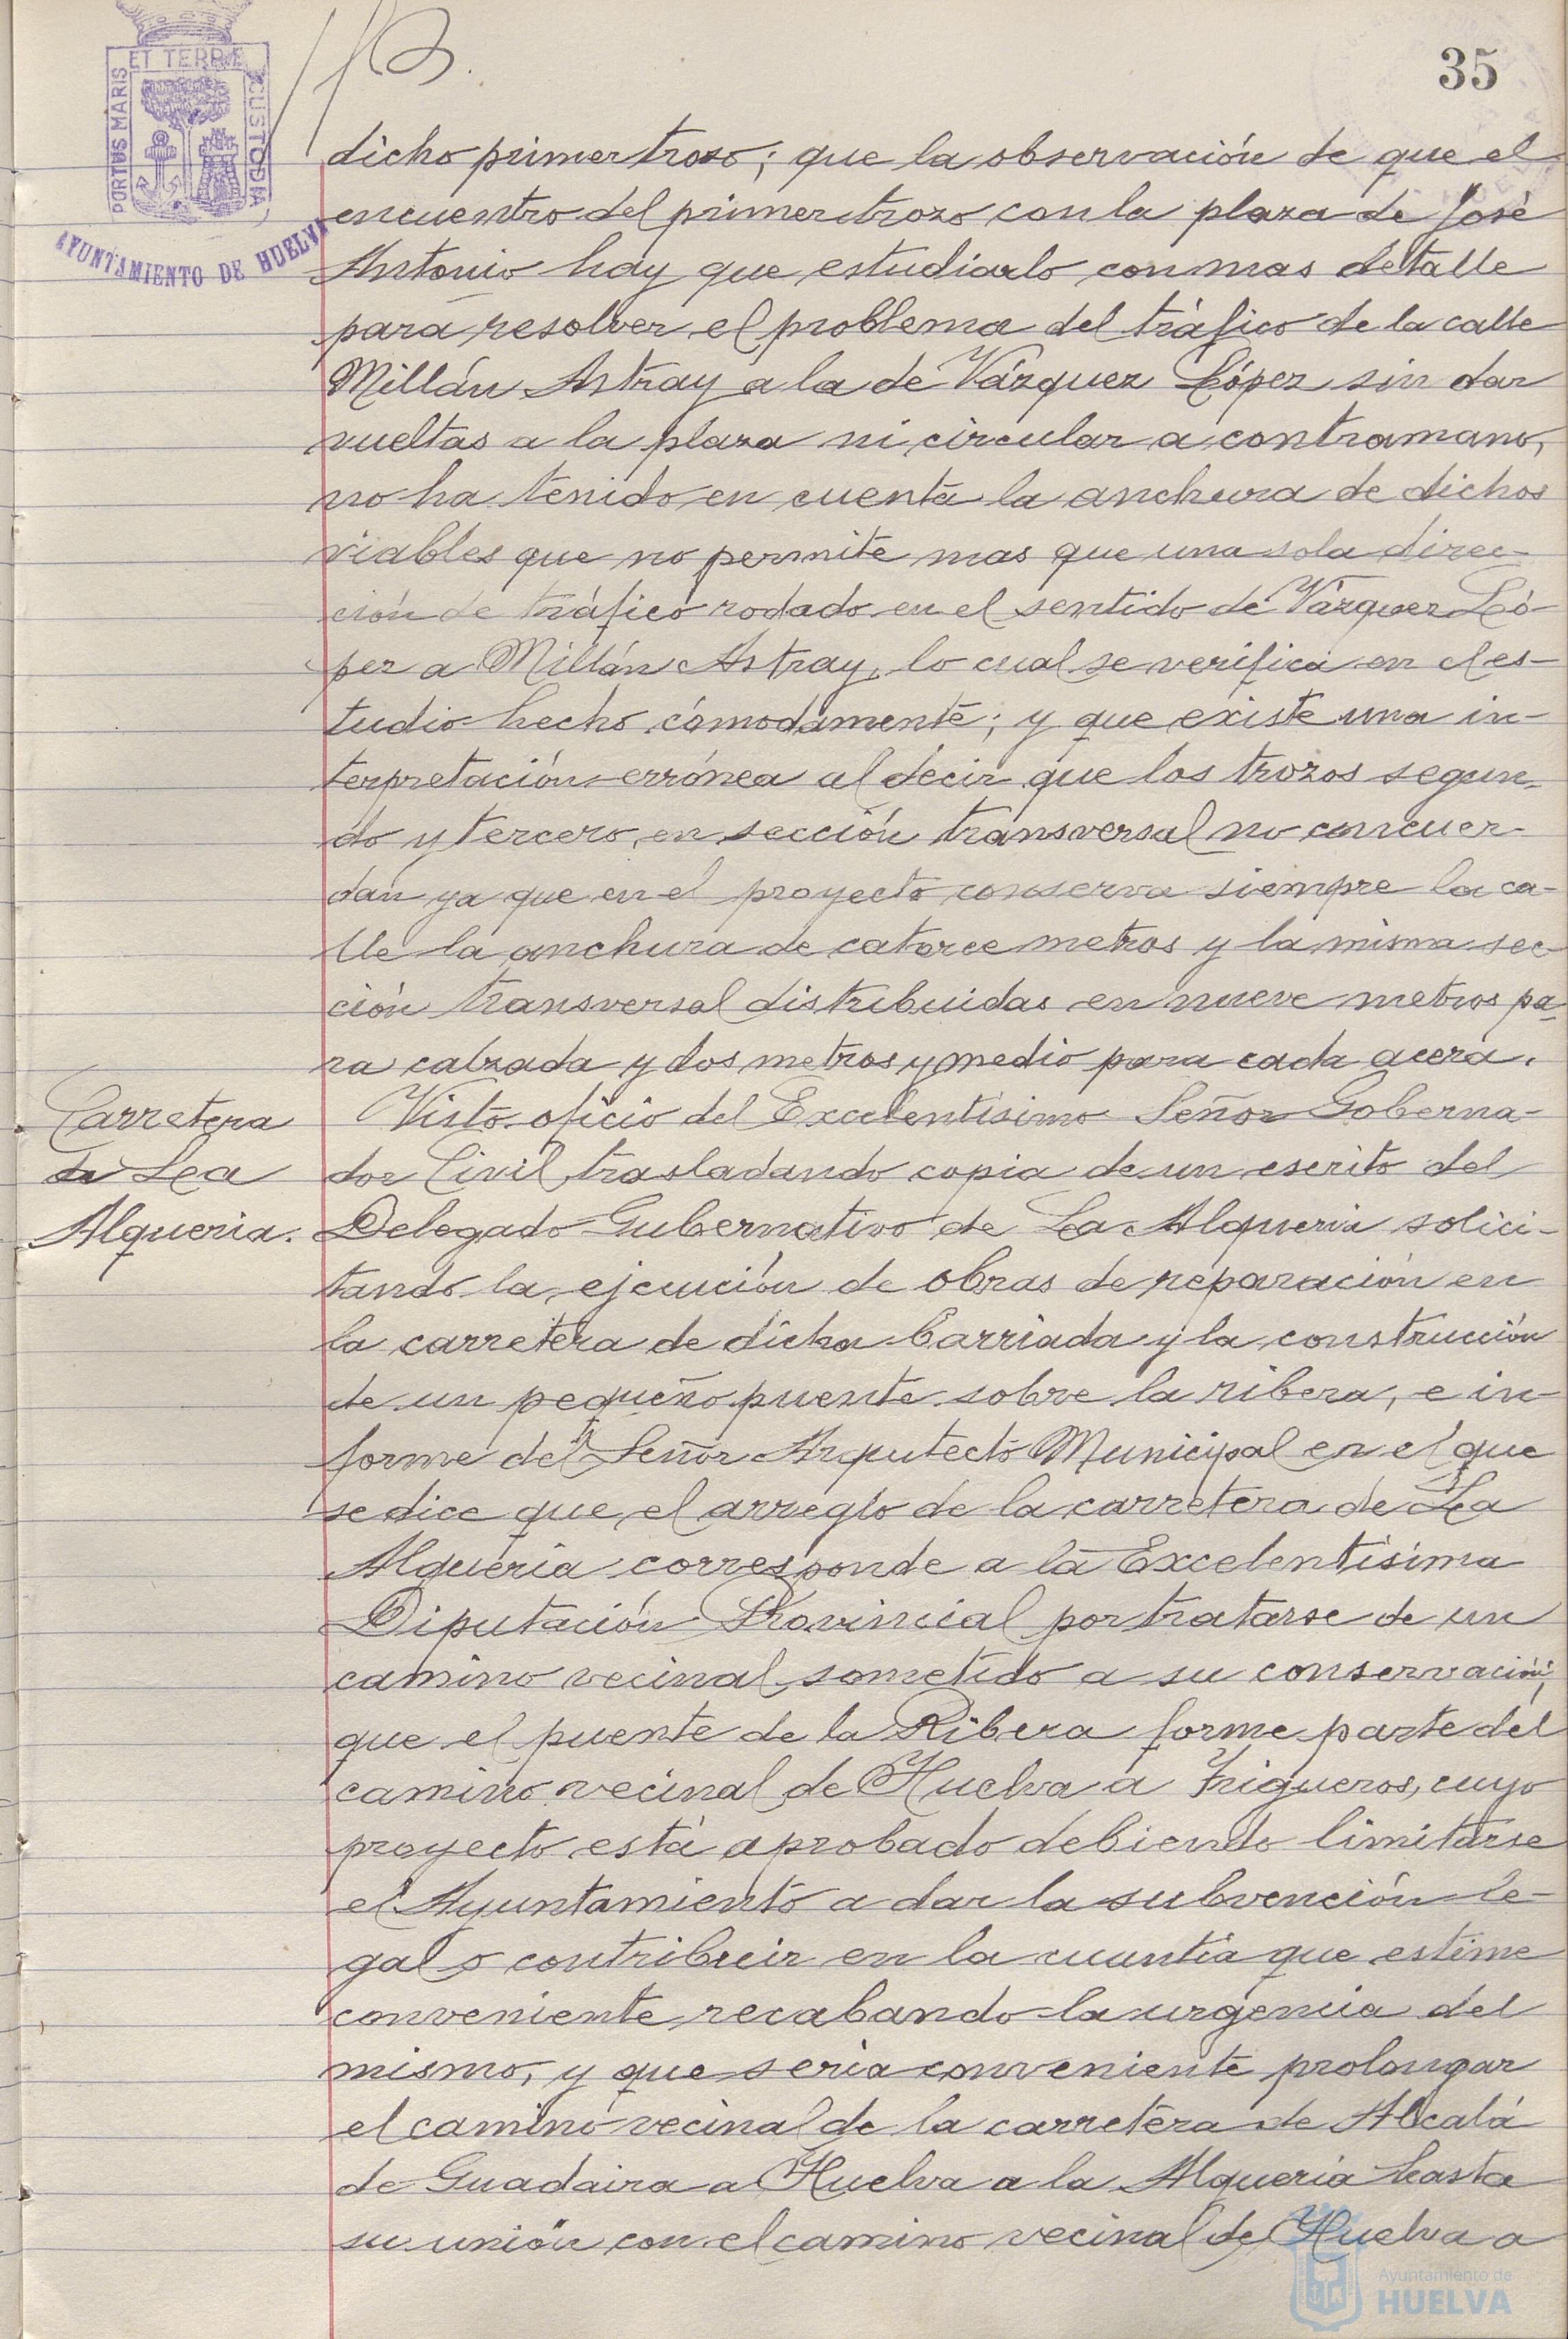 35
ET TERRÆ
PORTUS MARIS
CUSTODIA
AYUNTAMIENTO DE HUELVA
dicho primer trozo; que la observación de que el
encuentro del primer trozo con la plaza de José
Antonio hay que estudiarlo con mas detalle
para resolver el problema del tráfico de la calle
Millán Astray a la de Vázquez López sin dar
vueltas a la plaza ni circular a contramano,
no ha tenido en cuenta la anchura de dichos
viables que no permite mas que una sola direc-
ción de tráfico rodado en el sentido de Vázquez Ló-
pez a Millán Astray, lo cual se verifica en el es-
tudio hecho cómodamente; y que existe una in-
terpretación errónea al decir que los trozos segun-
do y tercero, en sección transversal no concuer-
dan ya que en el proyecto conserva siempre la ca-
lle la anchura de catorce metros y la misma sec-
ción transversal distribuidas en nueve metros pa-
ra calzada y dos metros y medio para cada acera.
Carretera
de La
Alqueria.
Visto oficio del Excelentísimo Señor Goberna-
dor Civil trasladando copia de un escrito del
Delegado Gubernativo de La Alqueria solici-
tando la ejecución de obras de reparación en
la carretera de dicha barriada y la construcción
de un pequeño puente sobre la ribera, e in-
forme del Señor Arquitecto Municipal en el que
se dice que el arreglo de la carretera de La
Alqueria corresponde a la Excelentísima
Diputación Provincial por tratarse de un
camino vecinal sometido a su conservación;
que el puente de la Ribera forme parte del
camino vecinal de Huelva a Trigueros, cuyo
proyecto está aprobado debiendo limitarse
el Ayuntamiento a dar la subvención le-
gal o contribuir en la cuantía que estime
conveniente recabando la urgencia del
mismo, y que seria conveniente prolongar
el camino vecinal de la carretera de Alcalá
de Guadaira a Huelva a la Alqueria hasta
su unión con el camino vecinal de Huelva a
Ayuntamiento de
HUELVA